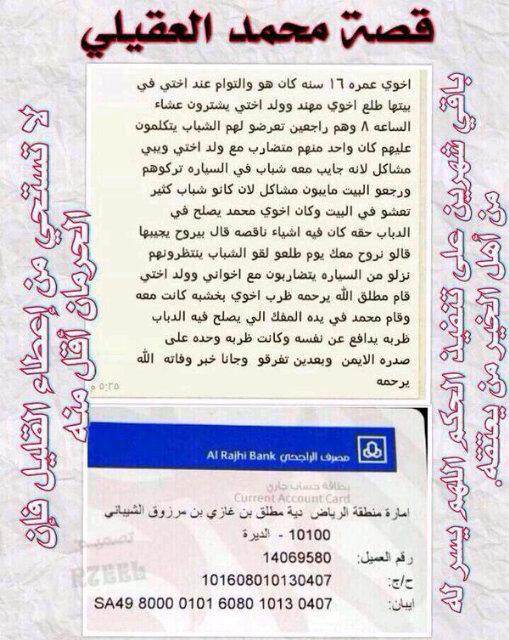 قصة محمد العقيلي
باقي شهرين على تنفيذ الحكم اللهم يسر له
من أهل الخير من يعتقه.
اخوي عمره ١٦ سنه كان هو والتوام عند اختي في
بيتها طلع اخوي مهند وولد اختي يشترون عشاء
الساعه ٨ وهم راجعين تعرضو لهم الشباب يتكلمون
عليهم كان واحد منهم متضارب مع ولد اختي ويبي
مشاكل لانه جايب معه شباب في السياره تركوهم
ورجعو البيت مايبون مشاكل لان كانو شباب كثير
تعشو في البيت وكان اخوي محمد يصلح في
الدباب حقه كان فيه اشياء ناقصه قال بيروح يجيبها
قالو نروح معك يوم طلعو لقو الشباب ينتظرونهم
نزلو من السياره يتضاربون مع اخواني وولد اختي
قام مطلق الله يرحمه ظرب اخوي بخشبه كانت معه
وقام محمد في يده المفك الي يصلح فيه الدباب
ظربه يدافع عن نفسه وكانت ظربه وحده على
صدره الايمن وبعدين تفرقو وجانا خبر وفاته الله
يرحمه
٥:٢٥ م
لا تستحي من إعطاء القليل فإن
الحرمان أقل منه
مصرف الراجحي Al Rajhi Bank
بطاقة حساب جاري
Current Account Card
امارة منطقة الرياض دية مطلق بن غازي بن مرزوق الشيباني
10100 - الديرة
رقم العميل: 14069580
ح/ج: 101608010130407
ايبان: SA49 8000 0101 6080 1013 0407
تصميم